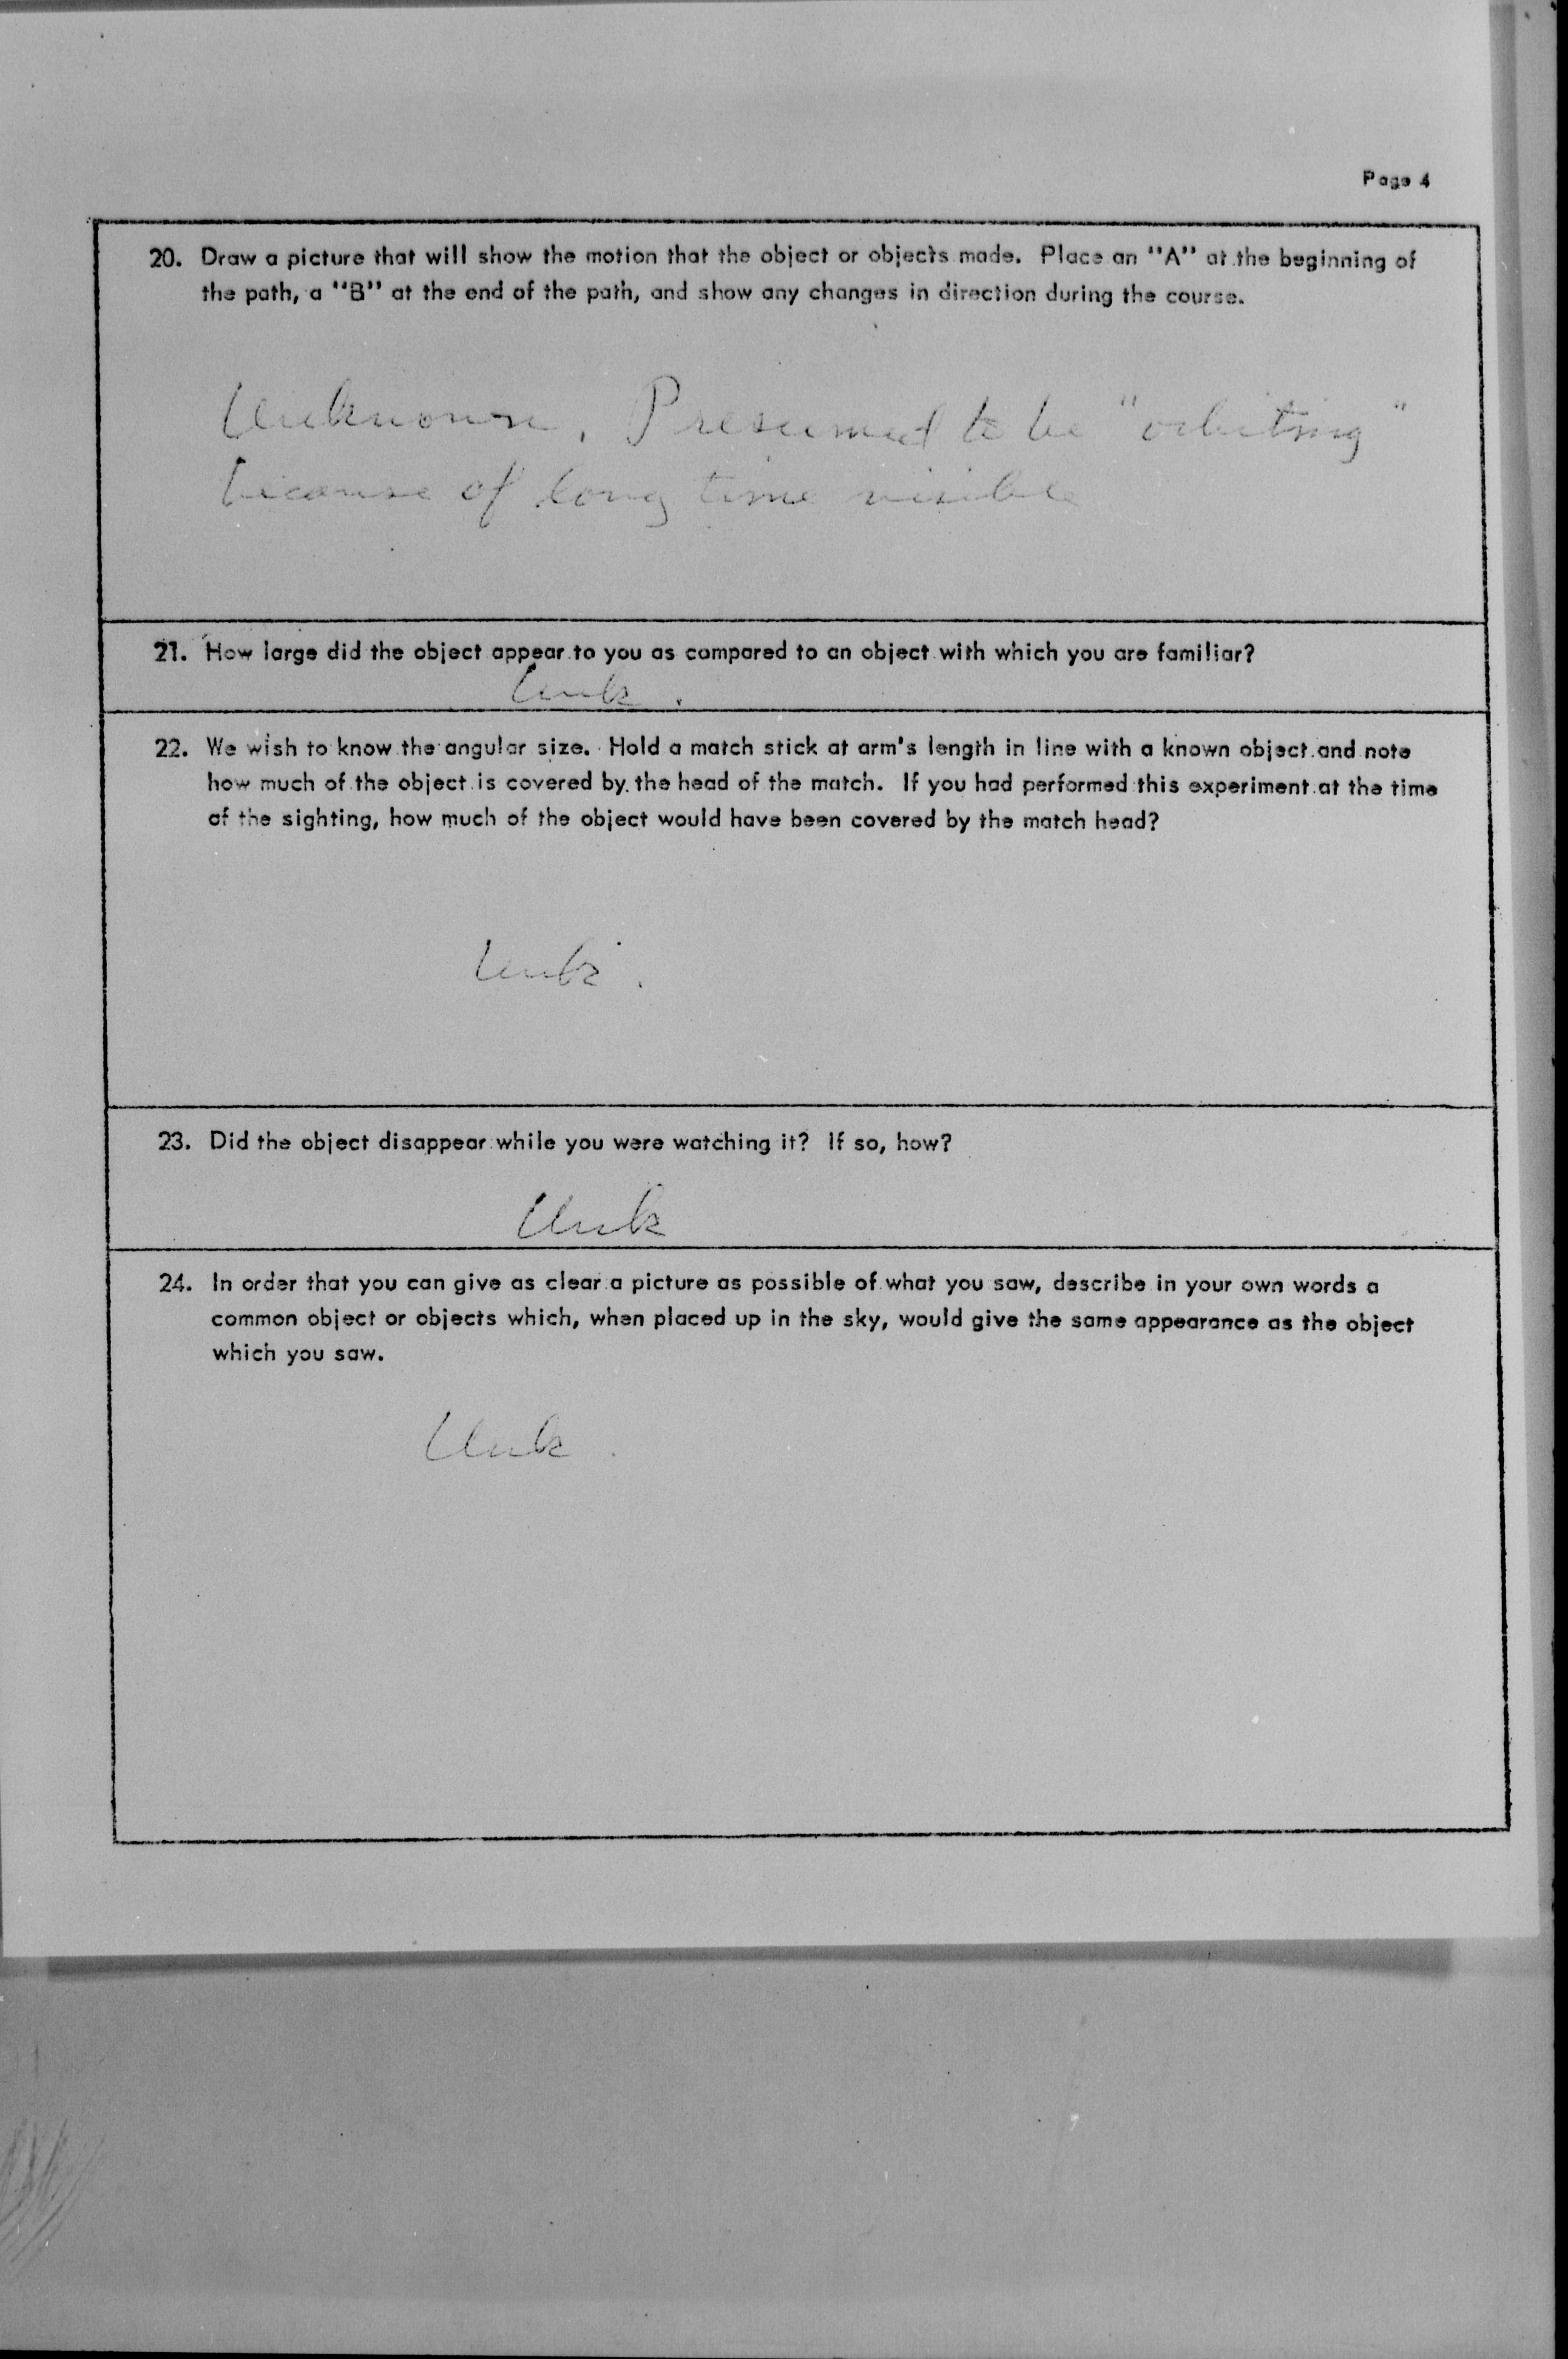 Page 4
20. Draw a picture that will show the motion that the object or objects made. Place an "A" at the beginning of
the path, a "B" at the end of the path, and show any changes in direction during the course.
Unknown, Presumed to be "orbiting"
because of long time visible
21. How large did the object appear to you as compared to an object with which you are familiar?
Unk.
22. We wish to know the angular size. Hold a match stick at arm's length in line with a known object and note
how much of the object is covered by the head of the match. If you had performed this experiment at the time
of the sighting, how much of the object would have been covered by the match head?
Unk.
23. Did the object disappear while you were watching it? If so, how?
Unk
24. In order that you can give as clear a picture as possible of what you saw, describe in your own words a
common object or objects which, when placed up in the sky, would give the same appearance as the object
which you saw.
Unk.